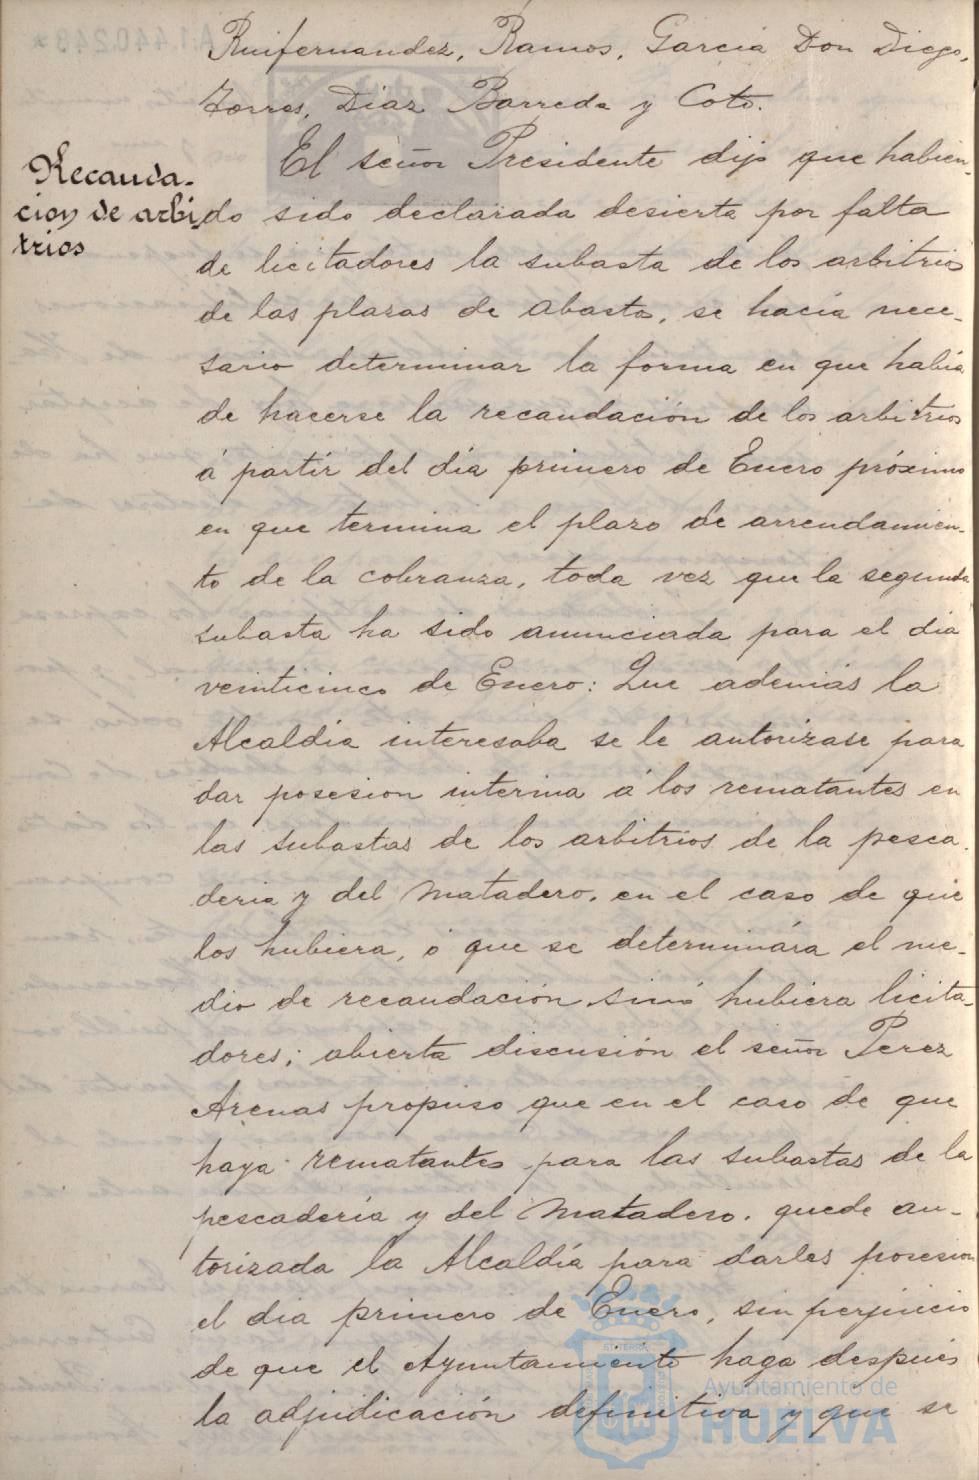 Ruifernandez, Ramos, Garcia Don Diego,
Torres, Diaz Barreda y Coto.
Recauda-
cion de arbi-
trios
El señor Presidente dijo que habien-
do sido declarada desierta por falta
de licitadores la subasta de los arbitrios
de las plazas de abasto, se hacía nece-
sario determinar la forma en que había
de hacerse la recaudación de los arbitrios
á partir del día primero de Enero próximo
en que termina el plazo de arrendamien-
to de la cobranza, toda vez que la segunda
subasta ha sido anunciada para el dia
veinticinco de Enero: Que además la
Alcaldía interesaba se le autorizase para
dar posesion interina á los rematantes en
las subastas de los arbitrios de la pesca-
deria y del Matadero, en el caso de que
los hubiera, ó que se determinára el me-
dio de recaudación sinó hubiera licita-
dores; abierta discusión el señor Perez
Arenas propuso que en el caso de que
haya rematantes para las subastas de la
pescadería y del Matadero, quede au-
torizada la Alcaldía para darles posesion
el dia primero de Enero, sin perjuicio
de que el Ayuntamiento haga despues
la adjudicación definitiva y que se
Ayuntamiento de
HUELVA